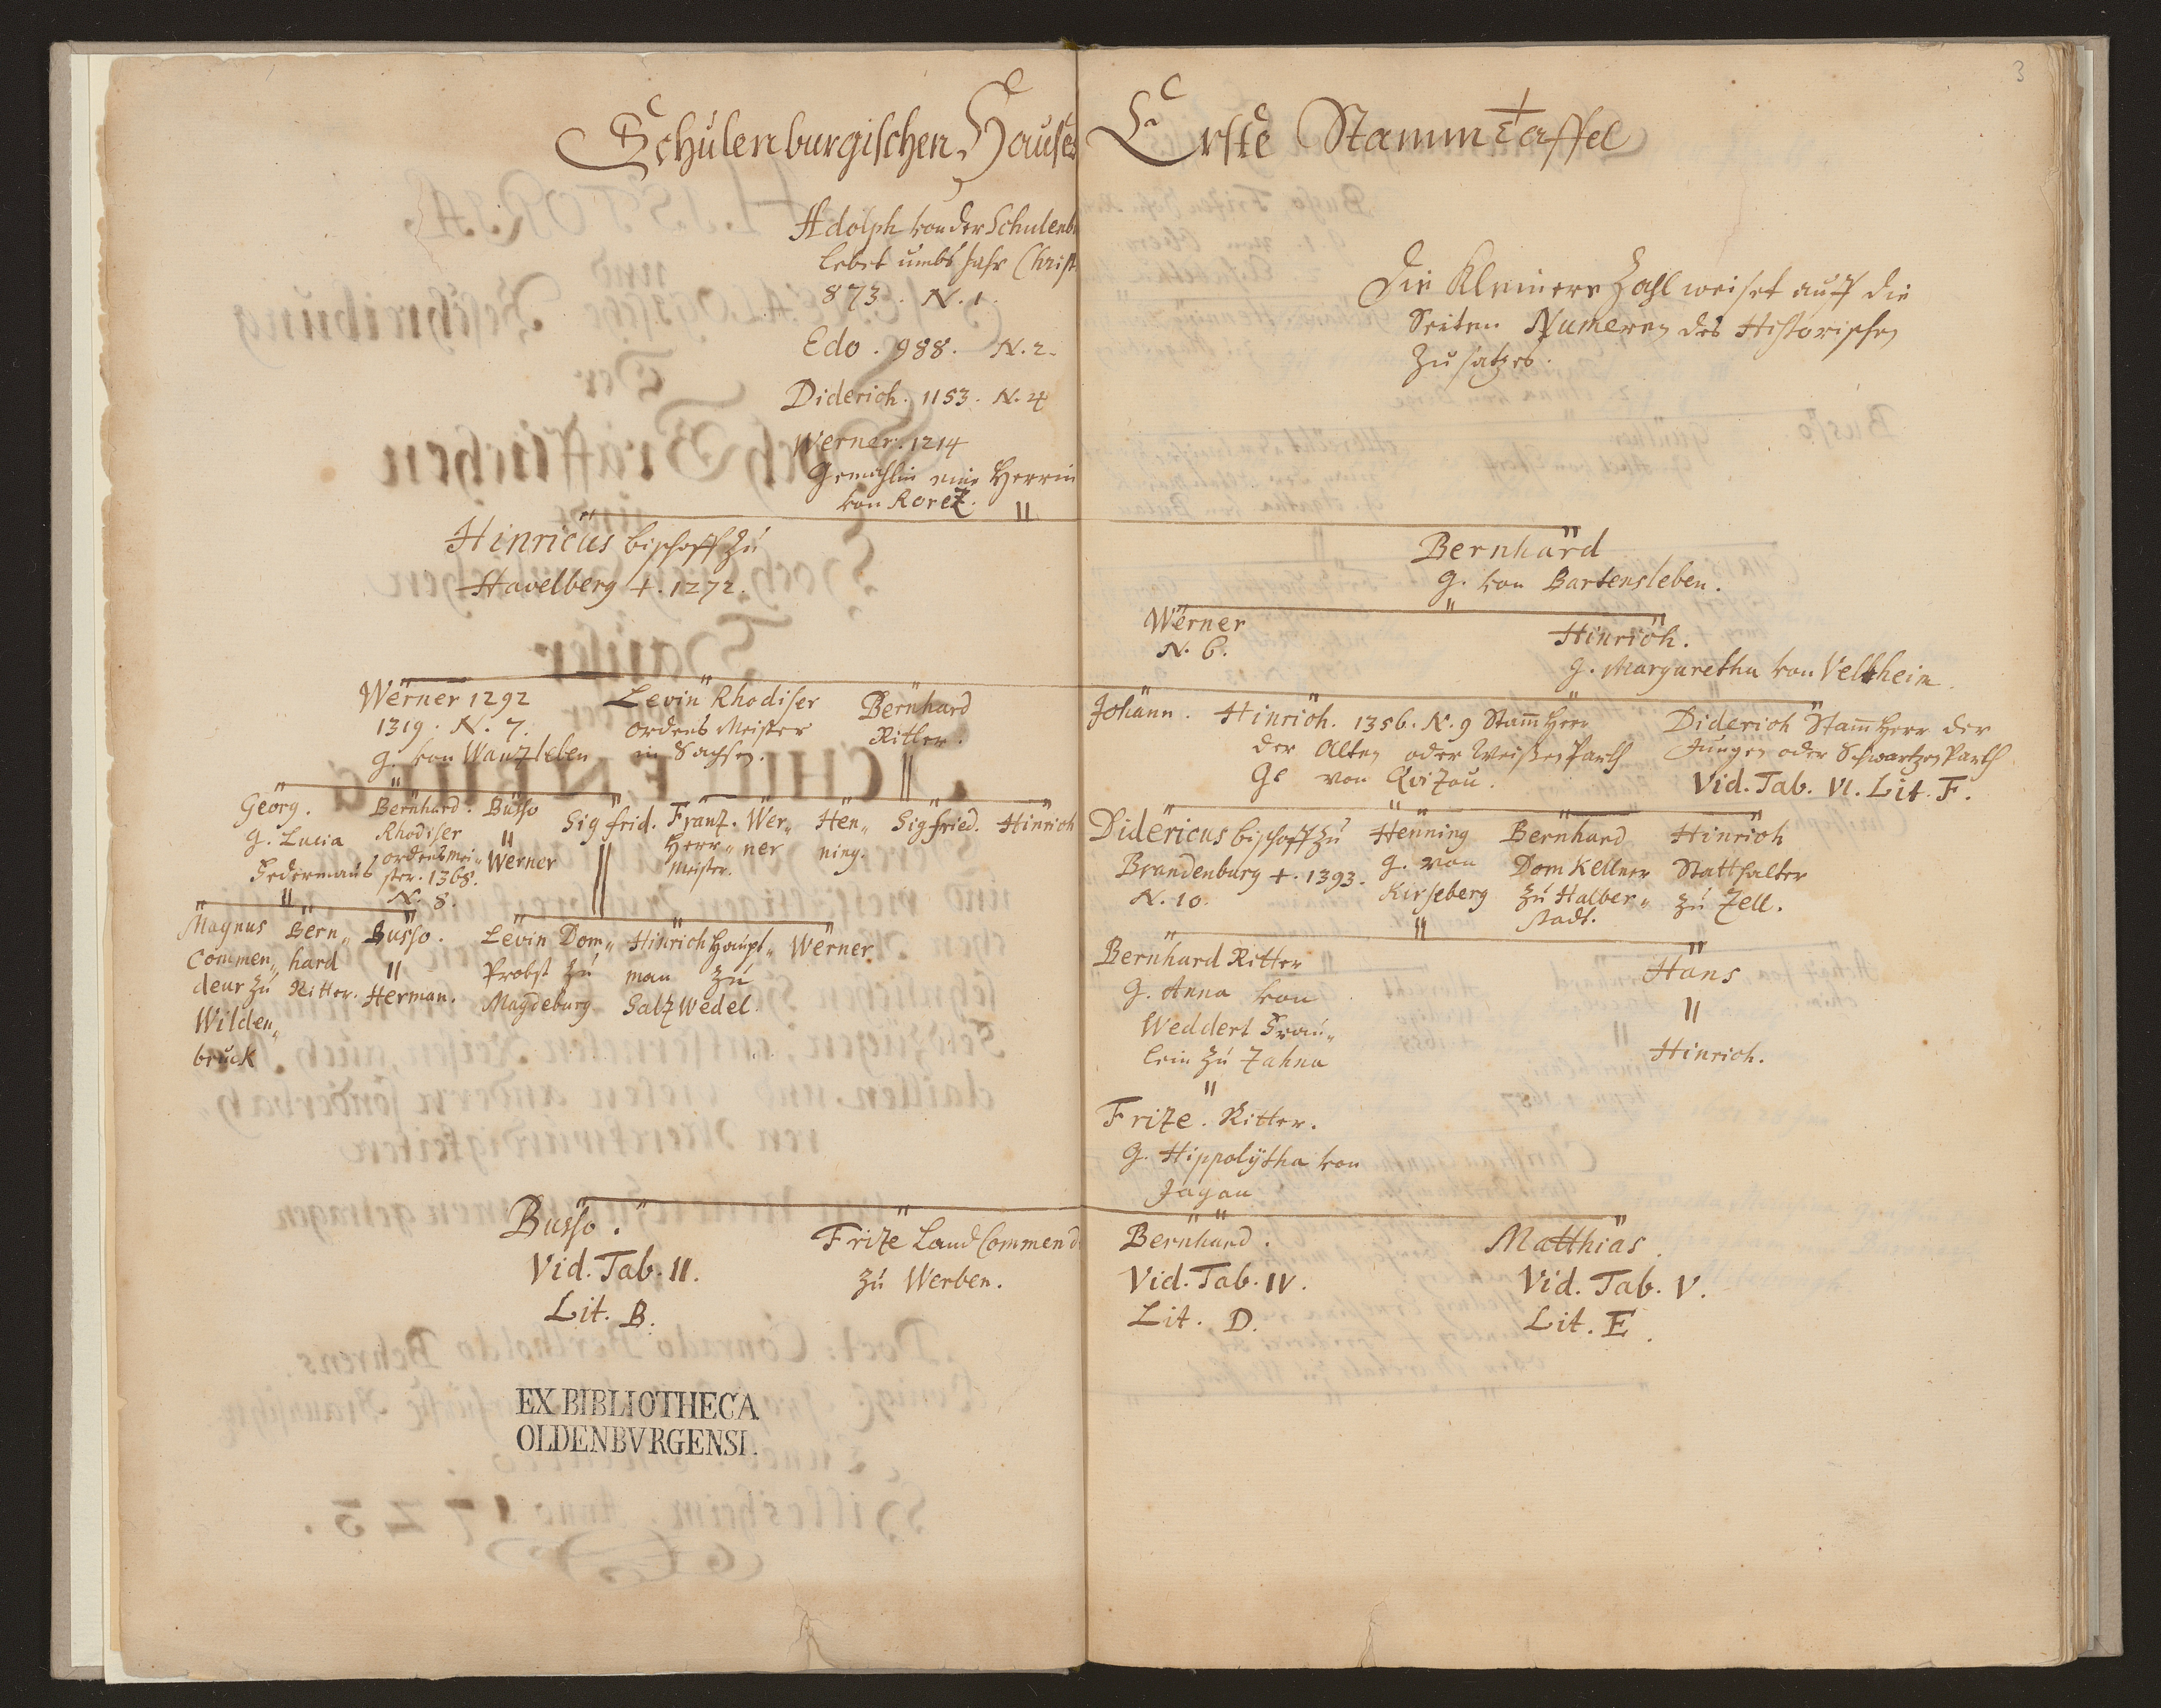 3
Schulenburgischen Hauses Erste Stammtaffel
Adolph von der Schulenb
lebet umbs Jahr Christ
873. N. 1.
Edo. 988. N. 2.
Diderich. 1153. N. 4
Werner. 1214
Gemahlin eine Herrin
von Roretz.
Die Kleinere Zahl weiset auff die
Seiten Numeren des Historischen
Zusatzes.
Hinricus bischoff zu
Havelberg +. 1272.
Bernhard
G. von Bartensleben.
Werner
N. 6.
Hinrich.
G. Margaretha von Veltheim.
Werner 1292
1319. N. 7.
G. von Wantzleben
Levin Rhodiser
Ordens Meister
in Sachsen.
Bernhard
Ritter.
Johann.
Hinrich. 1356. N. 9 Stam̄ Herr
der Alten oder Weißen Parth
G. von Qvitzau.
Diderich Stam̄ Herr der
Jungen oder Schwartzen Parth
Vid. Tab. VI. Lit. F.
Georg.
G. Lucia
Bernhard.
Rhodiser
ordensmei„
ster. 1368.
N. 8.
Busso
Werner
Sigfrid.
Frantz.
Herr„
Meister.
Wer„
ner
Hen„
ning.
Sigfried.
Hinrich
Didericus bischoff zu
Brandenburg +. 1393.
N. 10.
Henning
G. von
Kirseberg
Bernhard
Dom Kellner
zu Halber„
stadt.
Hinrich
Statthalter
zu Zell.
Magnus
Commen„
deur zu
Wilden„
bruck
Bern„
hard
Ritter.
Busso.
Herman.
Levin Dom„
Probst zu
Magdeburg
Hinrich Haupt„
man zu
Saltzwedel.
Werner
Bernhard Ritter
G. Anna von
Weddert Frau„
lein zu Zahna
Hans
Hinrich.
Fritze. Ritter.
G. Hippolÿtha von
Jagau
Busso.
Vid. Tab. II.
Lit. B.
Fritze Land Commend
zu Werben.
Bernhard.
Vid. Tab. IV.
Lit. D.
Matthias.
Vid. Tab. V.
Lit. E.
EX BIBLIOTHECA
OLDENBVRGENSI.